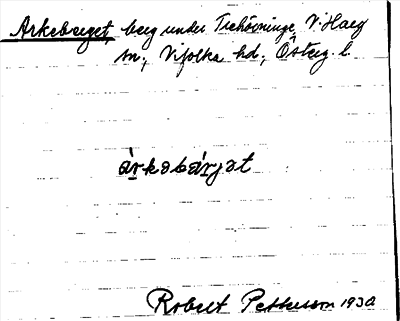 Arkeberget, berg under Trehörninge, V. Harg
sn., Vifolka hd., Österg. l.
árkəbærjət
Robert Pettersson 1930